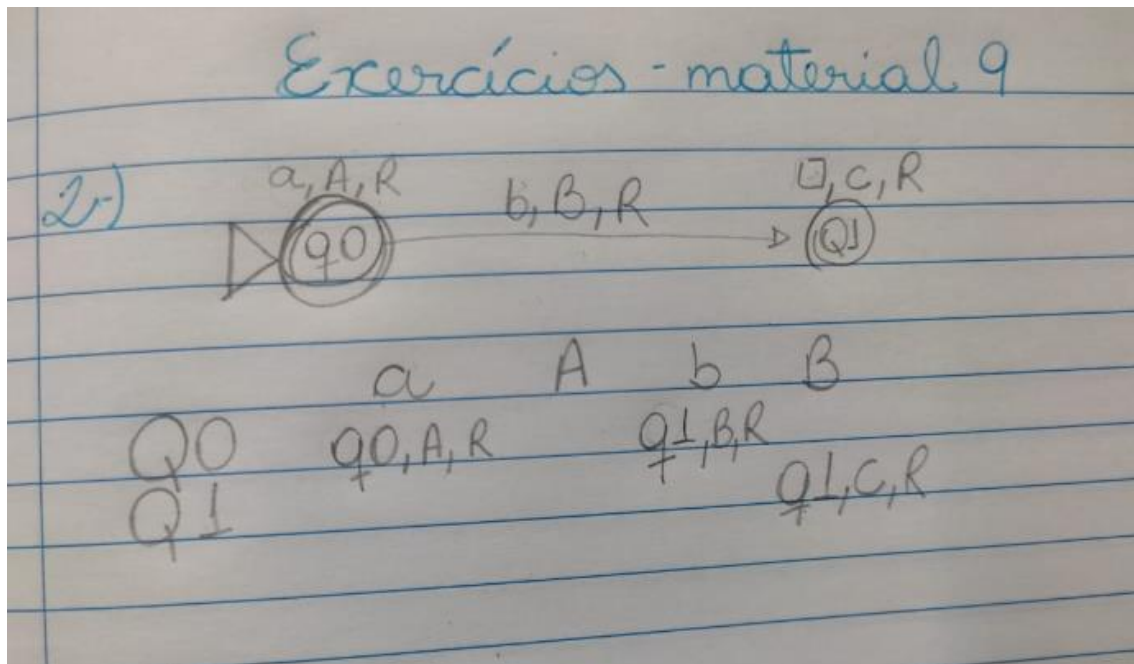 Exercícios - material 9
2-)
a, A, R b, B, R □, C, R
q0 Q1
a A b B
Q0 q0, A, R q1, B, R
Q1 q1, C, R